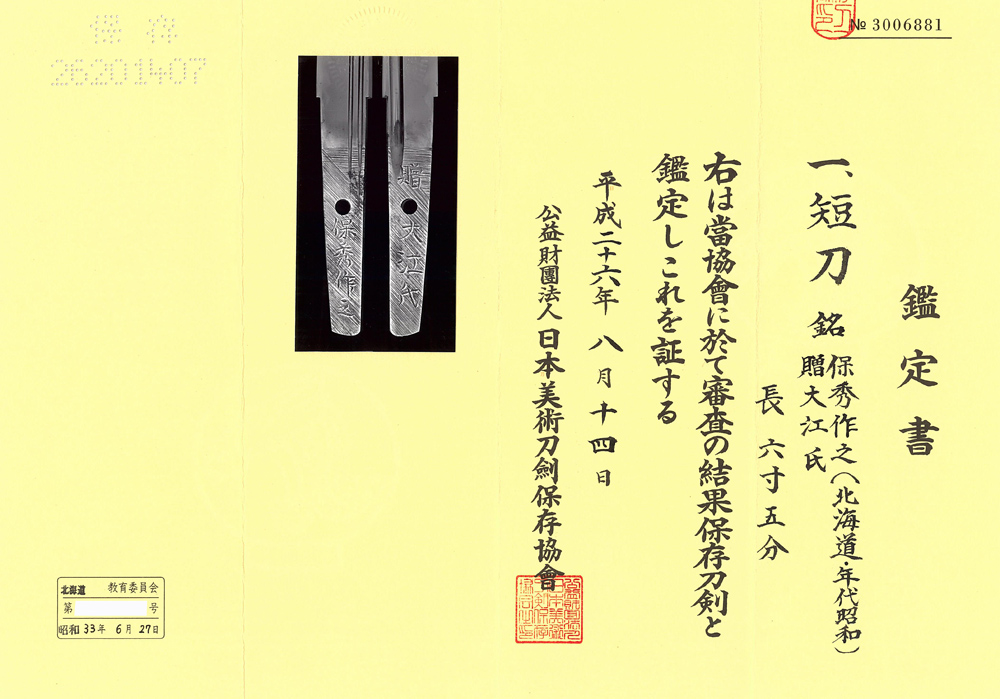 № 3006881
鑑定書
一、短刀 銘 保秀作之(北海道・年代昭和)
贈大江氏
長 六寸五分
右は當協會に於て審査の結果保存刀剣と
鑑定しこれを証する
平成二十六年 八月十四日
公益財團法人 日本美術刀劍保存協會
贈大江氏
保秀作之
保存
26201407
北海道 教育委員会
第 号
昭和33年 6月 27日